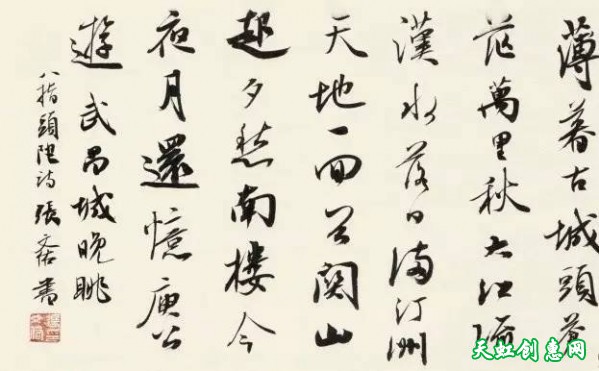 薄暮古城頭蒼
茫萬里秋大江流
漢水落日滿汀洲
天地一回首關山
起夕愁南樓今
夜月還憶庾公
遊 武昌城晚眺
八指頭陀詩 張 書
天虹创惠网